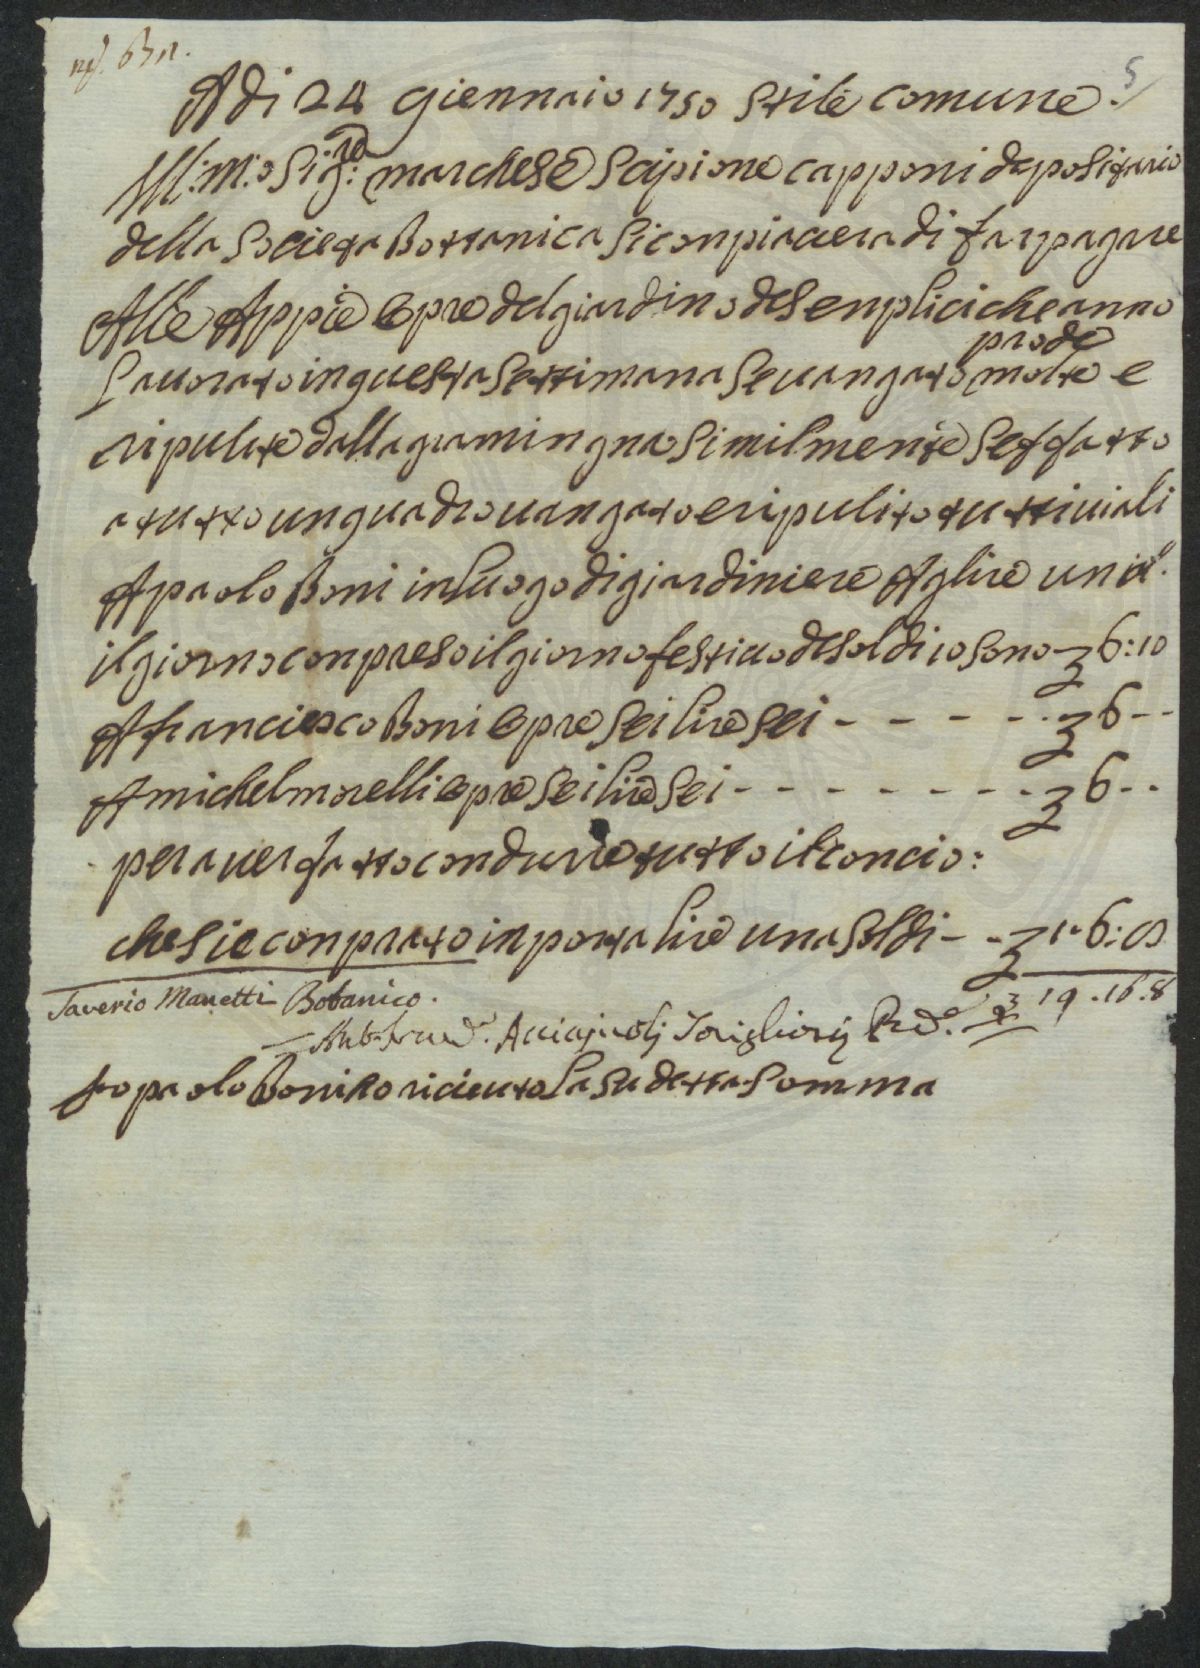 5
Adi 24 giennaio 1750 stile comune
Ill:m:o Sig:re marchese Scipione capponi depositario
della Societa Bottanica si conpiacera di far pagare
Alle Appiè opre del giardino de Senplici che anno
Lavorato in questa settimana se vangato molte prode e
ripulite dalla gramingna similmente se ffatto
a tutto un quadro vangato e ripulito tutti i viali
A paolo Boni in luogo di giardiniere A lire una
il giorno conpreso il giorno festivo de soldi 10 sono 6:10
A franciesco Boni opre sei lire sei - - - - - 6 - -
A michel morelli opre sei lire sei - - - - - - - - 6 - -
per aver fatto condurre tutto il concio:
che si e conprato inporta lire una soldi - - 1 6:8
Saverio Manetti Botanico. 19.16.8
Acciajuoli
Io paolo Boni o riceuto La sudetta Somma